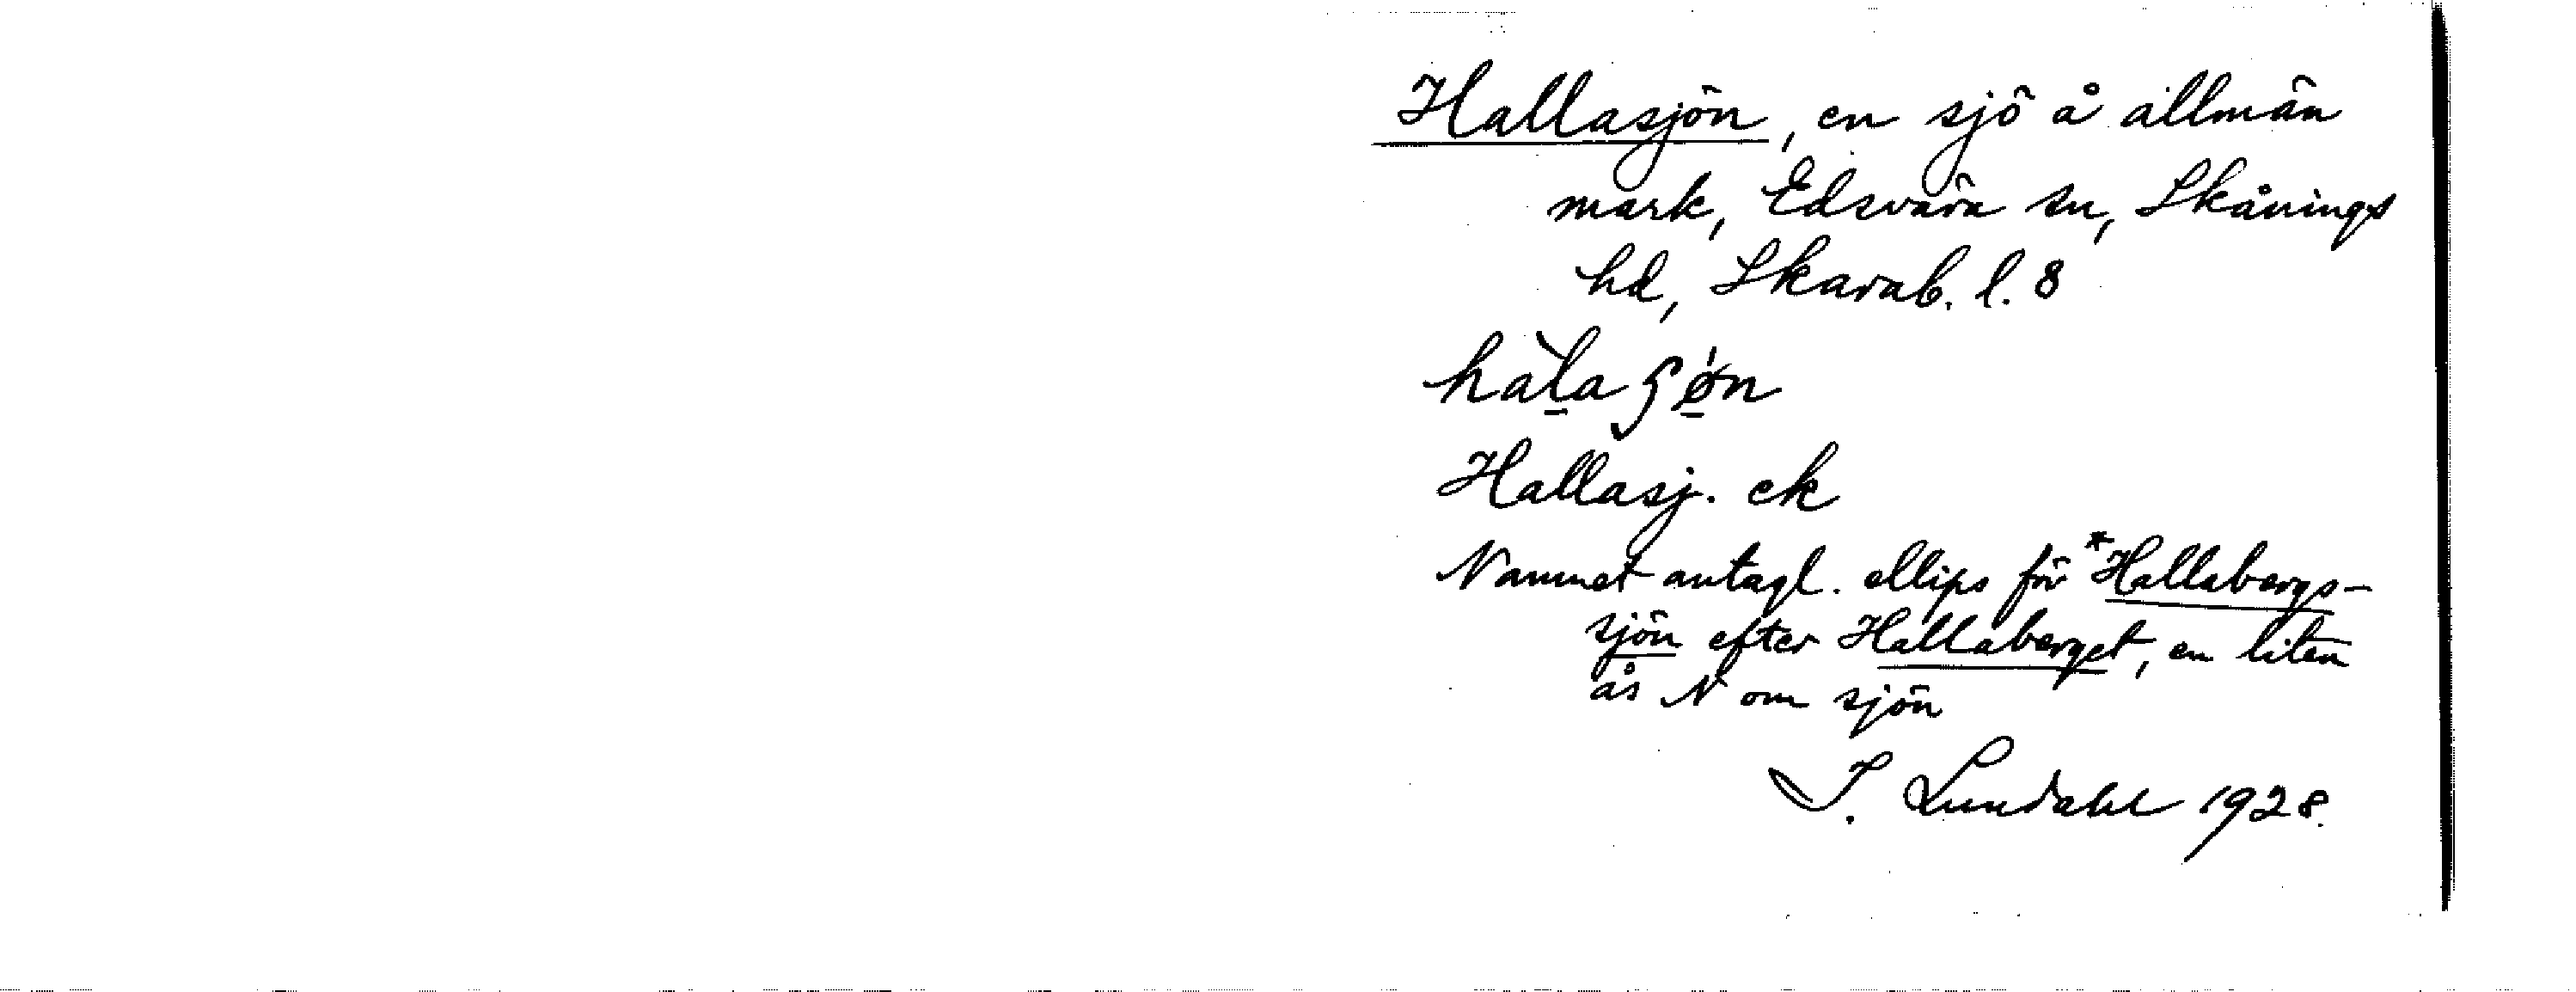 Hallasjön, en sjö å allmän
mark, Edsvära sn, Skånings
hd, Skarab. l. 8
hàl̠aʃǿ̠n
Hallasj. ek
Namnet antagl. ellips för *Hallabergs-
sjön efter Hallaberget, en liten
ås N om sjön
I. Lundahl 1928.